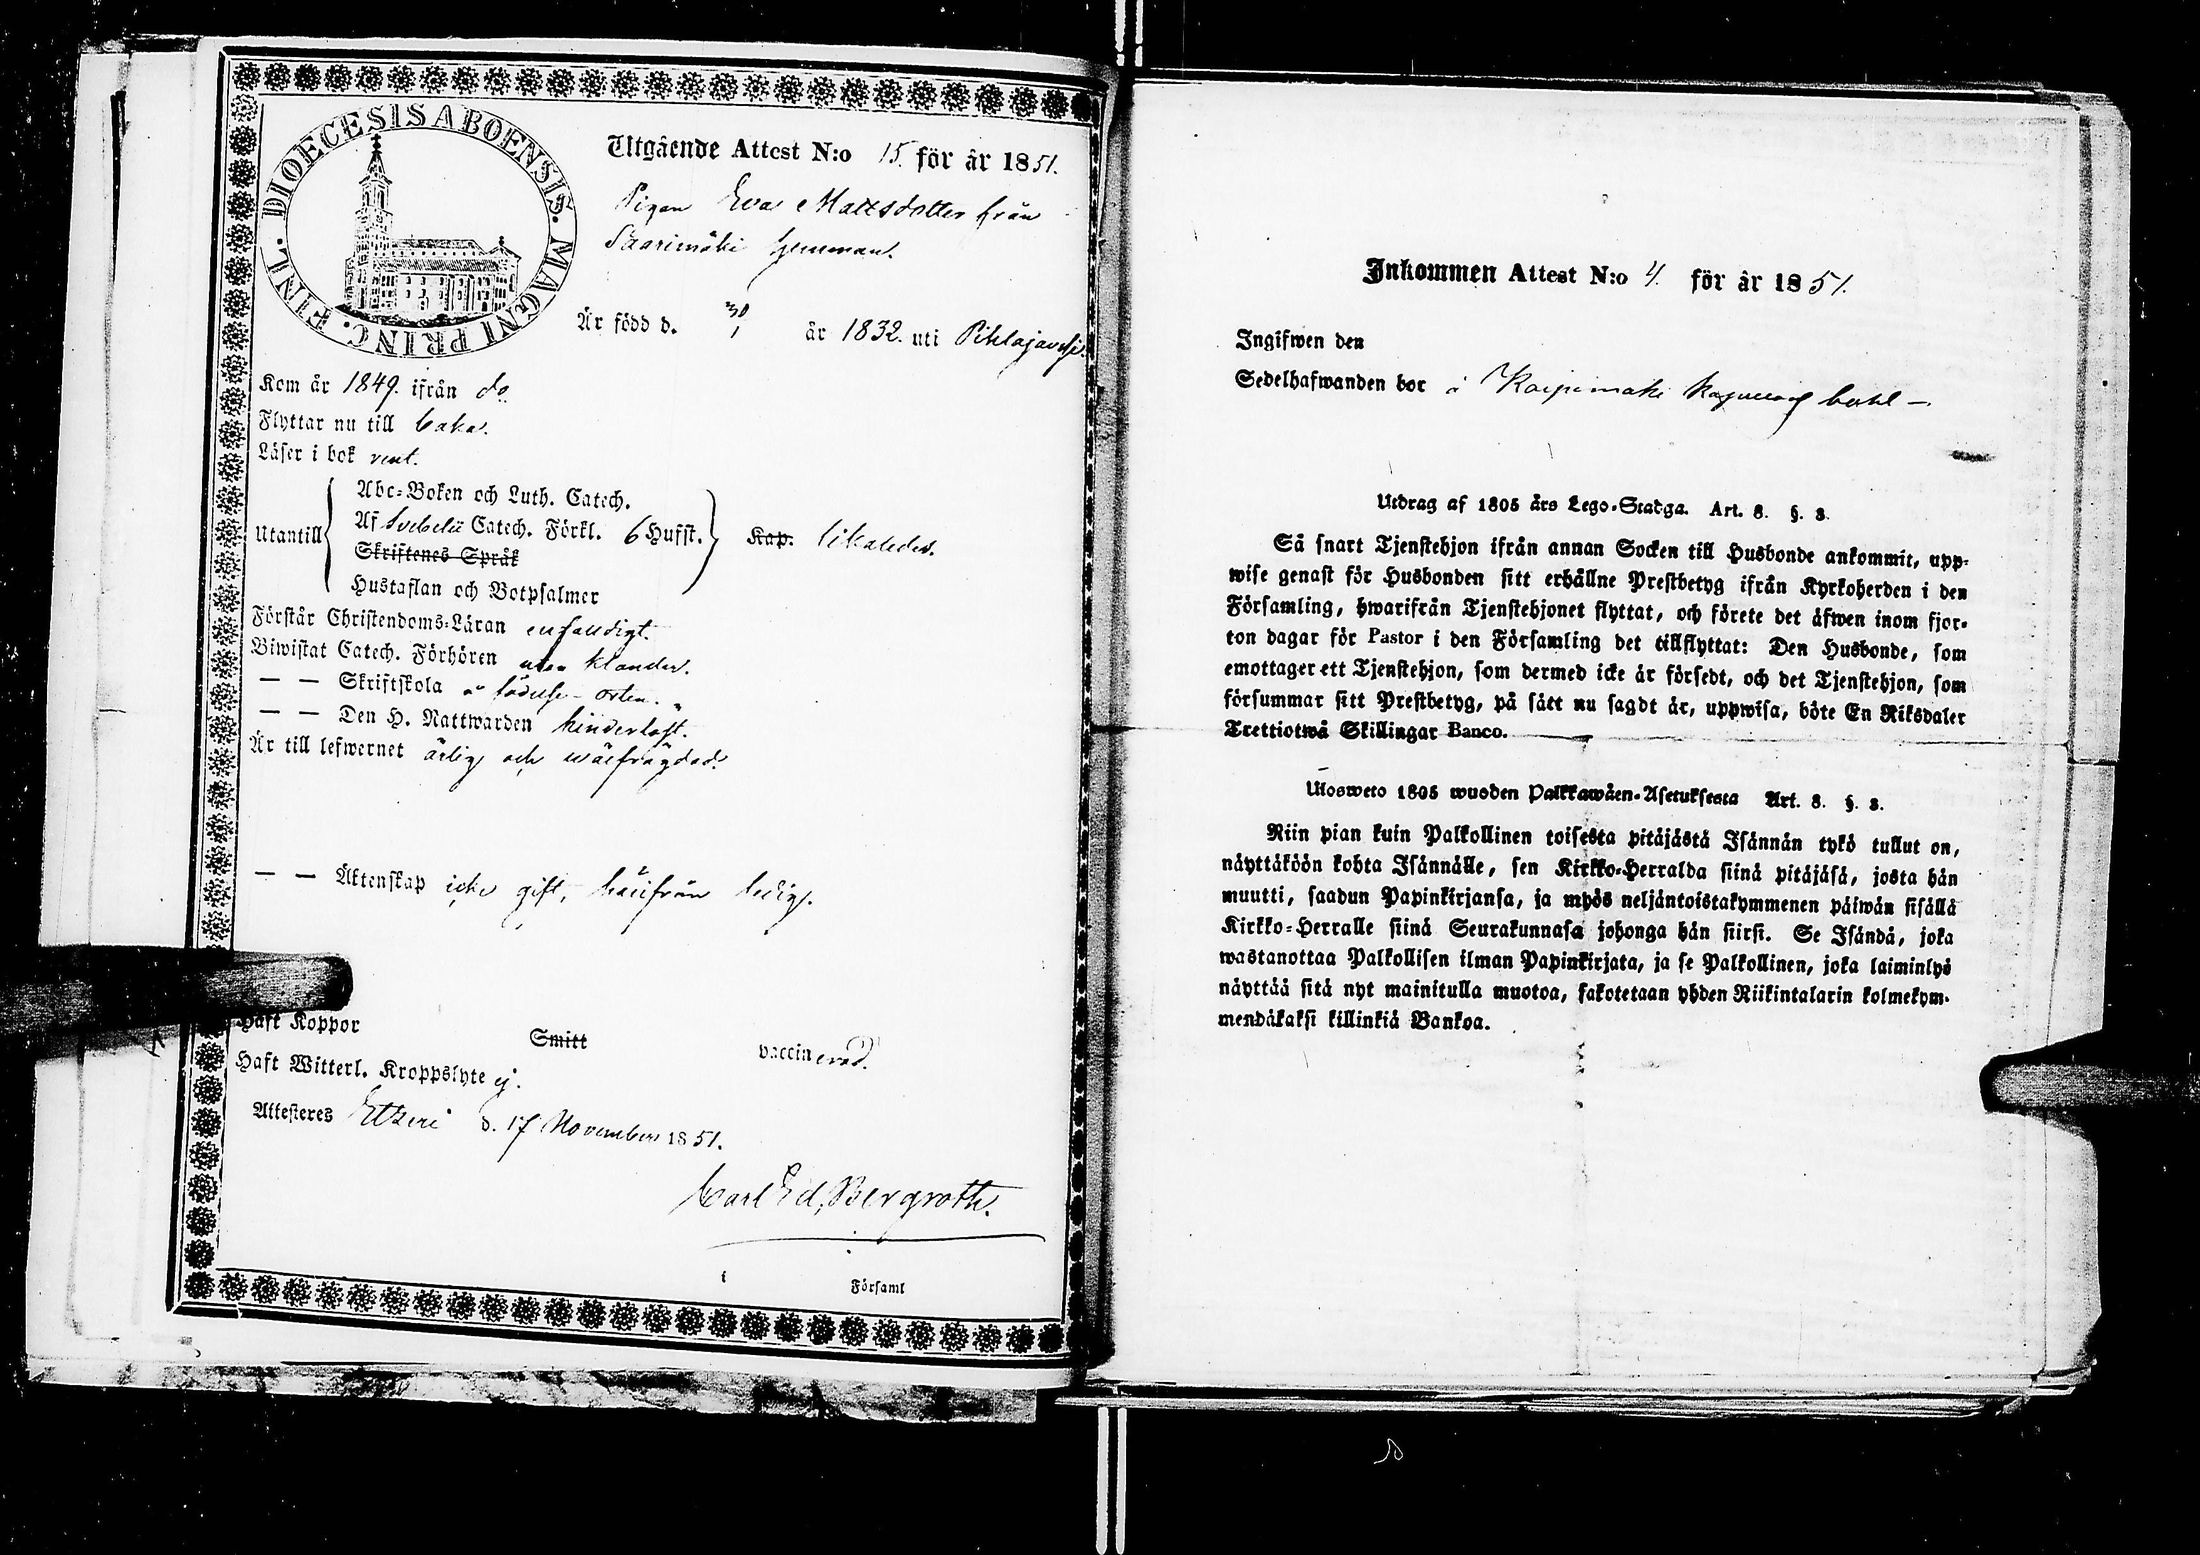 DIOECESIS ABOENSIS. MAGNI PRINC. FINL.
Utgående Attest N:o 15. för år 1851.
Pigan Eva Mattsdotter från
Saarimäki hemman.
Är född d. 30/1 år 1832. uti Pihlajavesi.
Kom år 1849. ifrån do
Flyttar nu till
Läser i bok rent.
Utantill
Abc-Boken och Luth. Catech.
Af Svebelii Catech. Förkl. 6 Hufst.
Skriftenes Språk
Hustaflan och Botpsalmer
Kap. likaledes.
Förstår Christendoms-Läran enfaldigt.
Biwistat Catech. Förhören utan klander.
— — Skriftskola å födelse-orten.
— — Den H. Nattwarden hinderlöst.
Är till lefwernet ärlig och wälfrägdad.
— — Äktenskap icke gift, härifrån ledig.
Haft Koppor Smitt vaccinerad.
Haft Witterl. Kroppslyte ej.
Attesteres Etseri d. 17 November 1851.
Carl Ed. Bergroth.
i Församl
Inkommen Attest N:o 4. för år 1851.
Ingifwen den
Sedelhafwanden bor å
Utdrag af 1805 års Lego-Stadga. Art. 8. §. 3.
Så snart Tjenstehjon ifrån annan Socken till Husbonde ankommit, upp-
wise genast för Husbonden sitt erhållne Prestbetyg ifrån Kyrkoherden i den
Församling, hwarifrån Tjenstehjonet flyttat, och förete det äfwen inom fjor-
ton dagar för Pastor i den Församling det tillflyttat: Den Husbonde, som
emottager ett Tjenstehjon, som dermed icke är försedt, och det Tjenstehjon, som
försummar sitt Prestbetyg, på sätt nu sagdt är, uppwisa, böte En Riksdaler
Trettiotwå Skillingar Banco.
Ulosweto 1805 wuoden Palkkawäen-Asetuksesta Art. 8. §. 3.
Niin pian kuin Palkollinen toisesta pitäjästä Isännän tykö tullut on,
näyttäköön kohta Isännälle, sen Kirkko-Herralda siinä pitäjäsä, josta hän
muutti, saadun Papinkirjansa, ja myös neljäntoistakymmenen päiwän sisällä
Kirkko-Herralle siinä Seurakunnasa johonga hän siirsi. Se Isändä, joka
wastanottaa Palkollisen ilman Papinkirjata, ja se Palkollinen, joka laiminlyö
näyttää sitä nyt mainitulla muotoa, sakotetaan yhden Riikintalarin kolmekym-
mendäkaksi killinkiä Bankoa.